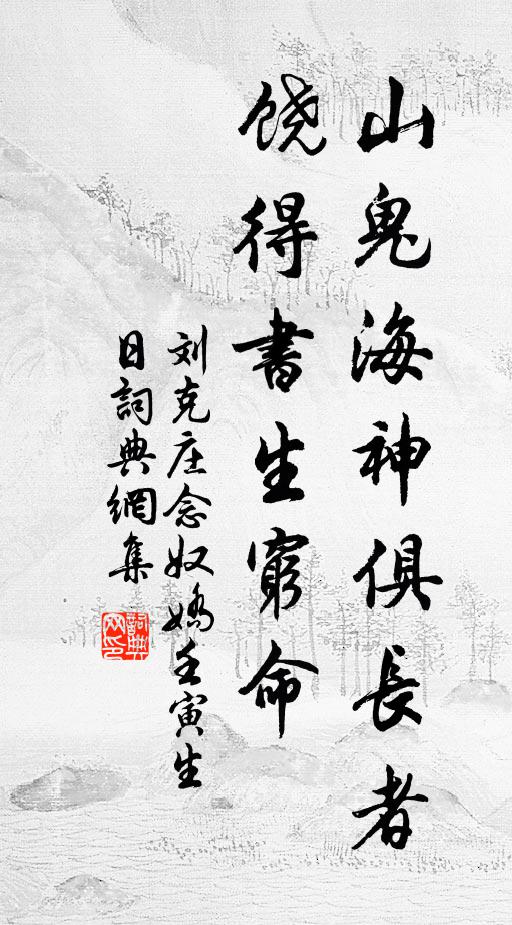 山鬼海神俱長者
饶得書生窮命
刘克庄念奴嬌壬寅生
日詞典網集
詞典网印